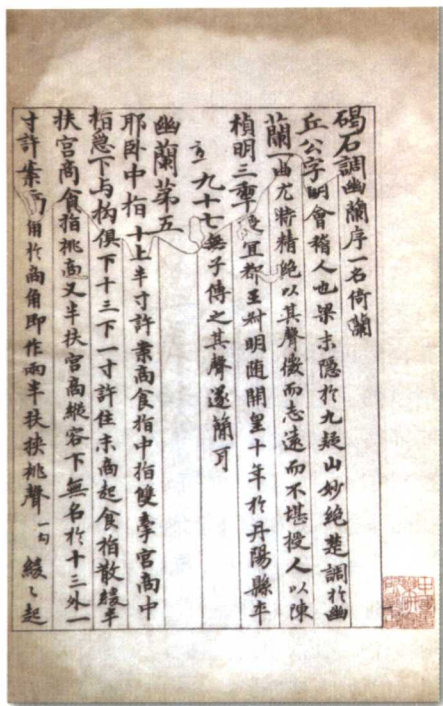 碣石調幽蘭序一名倚蘭
丘公字明會稽人也梁末隱於九疑山妙絕楚調於幽
蘭一曲尤特精絕以其聲微而志遠而不堪授人以陳
禎明三年授宜都王叔明隨開皇十年於丹陽縣卒
九十七無子傳之其聲遂簡耳
幽蘭第五
耶臥中指十上半寸許案商食指中指雙牽宮商中
指急下与拘俱下十三下一寸許住末商起食指散緩半
扶宮商食指挑商又半扶宮商縱容下無名於十三外一
寸許案商角於商角即作兩半扶挾挑聲一句緩〻起